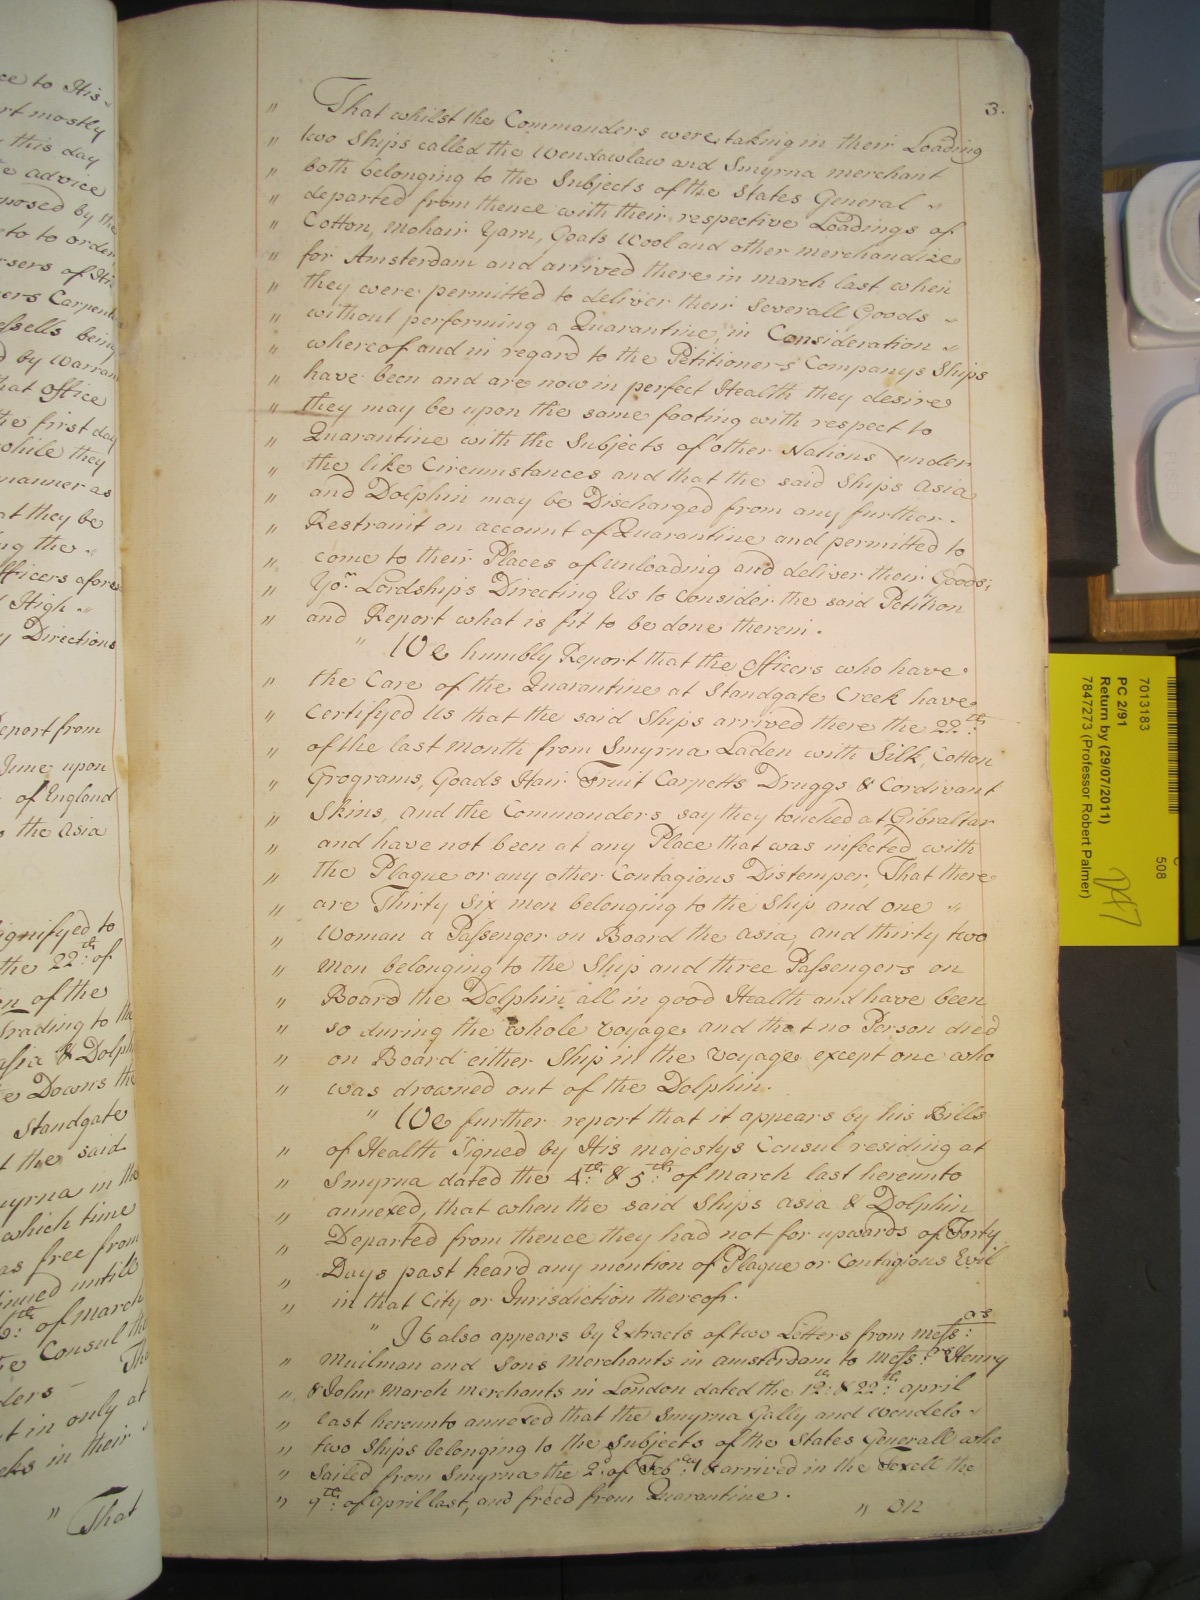 ce to His
rt mostly
this day
e advice
posed by the
to to order
rsers of His
ers Carpent
ssells being
d by Warran
hat office
the first day
while they
manner as
at they be
ng the
fficers afores
High
y Directions
eport from
June upon
of England
the Asia
ignifyed to
the 22th: of
n of the
Trading to the
asia & Dolph
e Downs the
Standgate
the said
myrna in the
which time
as free from
tinued untill
th: of March
e Consul the
ders - Tho
t in only at
eks in their
" That
3.
" That whilst the Commanders were taking in their Loading
" two Ships called the Wendawlaw and Smyrna merchant
" both belonging to the Subjects of the States General "
" departed from thence with their respective Loadings of
" Cotton, Mohair Yarn, Goats Wool and other merchandize
" for Amsterdam and arrived there in march last when
" they were permitted to deliver their Severall Goods "
" without performing a Quarantine, in Consideration "
" whereof and in regard to the Petitioners Companys Ships
" have been and are now in perfect Health they desire
" they may be upon the same footing with respect to
" Quarantine with the Subjects of other Nations under
" the like Circumstances and that the said Ships Asia
" and Dolphin may be Discharged from any further.
" Restraint on account of Quarantine and permitted to
" come to their Places of unloading and deliver their Goods;
" Yor. Lordships Directing Us to Consider the said Petition
" and Report what is fit to be done therein.
" We humbly Report that the officers who have
" the Care of the Quarantine at Standgate Creek have
" Certifyed Us that the said Ships arrived there the 22th:
" of the last month from Smyrna Laden with Silk, Cotton
" Grograms, Goads Hair Fruit Carpetts Druggs & Cordivant
" Skins, and the Commanders say they touched at Gibraltar
" and have not been at any Place that was infected with
" the Plague or any other Contagious Distemper, That there
" are Thirty Six men belonging to the Ship and one "
" Woman a Passenger on Board the Asia, and thirty two
" Men belonging to the Ship and three Passengers on
" Board the Dolphin all in good Health and have been
" so during the whole voyage and that no Person died
" on Board either Ship in the voyage except one who
" was drowned out of the Dolphin.
" We further report that it appears by his Bills
" of Health Signed by His majestys Consul residing at
" Smyrna dated the 4th: & 5th: of march last hereunto
" annexed, that when the said Ships asia & Dolphin
" Departed from thence they had not for upwards of Forty
" Days past heard any mention of Plague or Contagious Evil
" in that City or Jurisdiction thereof.
" It also appears by Extracts of two Letters from mess:rs
" Muilman and Sons Merchants in amsterdam to mess:rs Henry
" & John March merchants in London dated the 12th: & 22th: april
" last hereunto annexed that the Smyrna Gally and Wendelo "
" two Ships belonging to the Subjects of the States Generall who
" Sailed from Smyrna the 2d: of Feb:ry & arrived in the Texell the
" 9th: of april last, and freed from Quarantine.
7013183
PC 2/91
Return by (29/07/2011)
7847273 (Professor Robert Palmer)
508